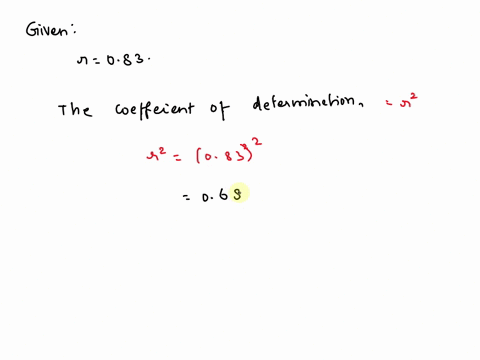 Given:
r = 0.83.
The coefficient of determination, = r²
r² = (0.83)²
= 0.68